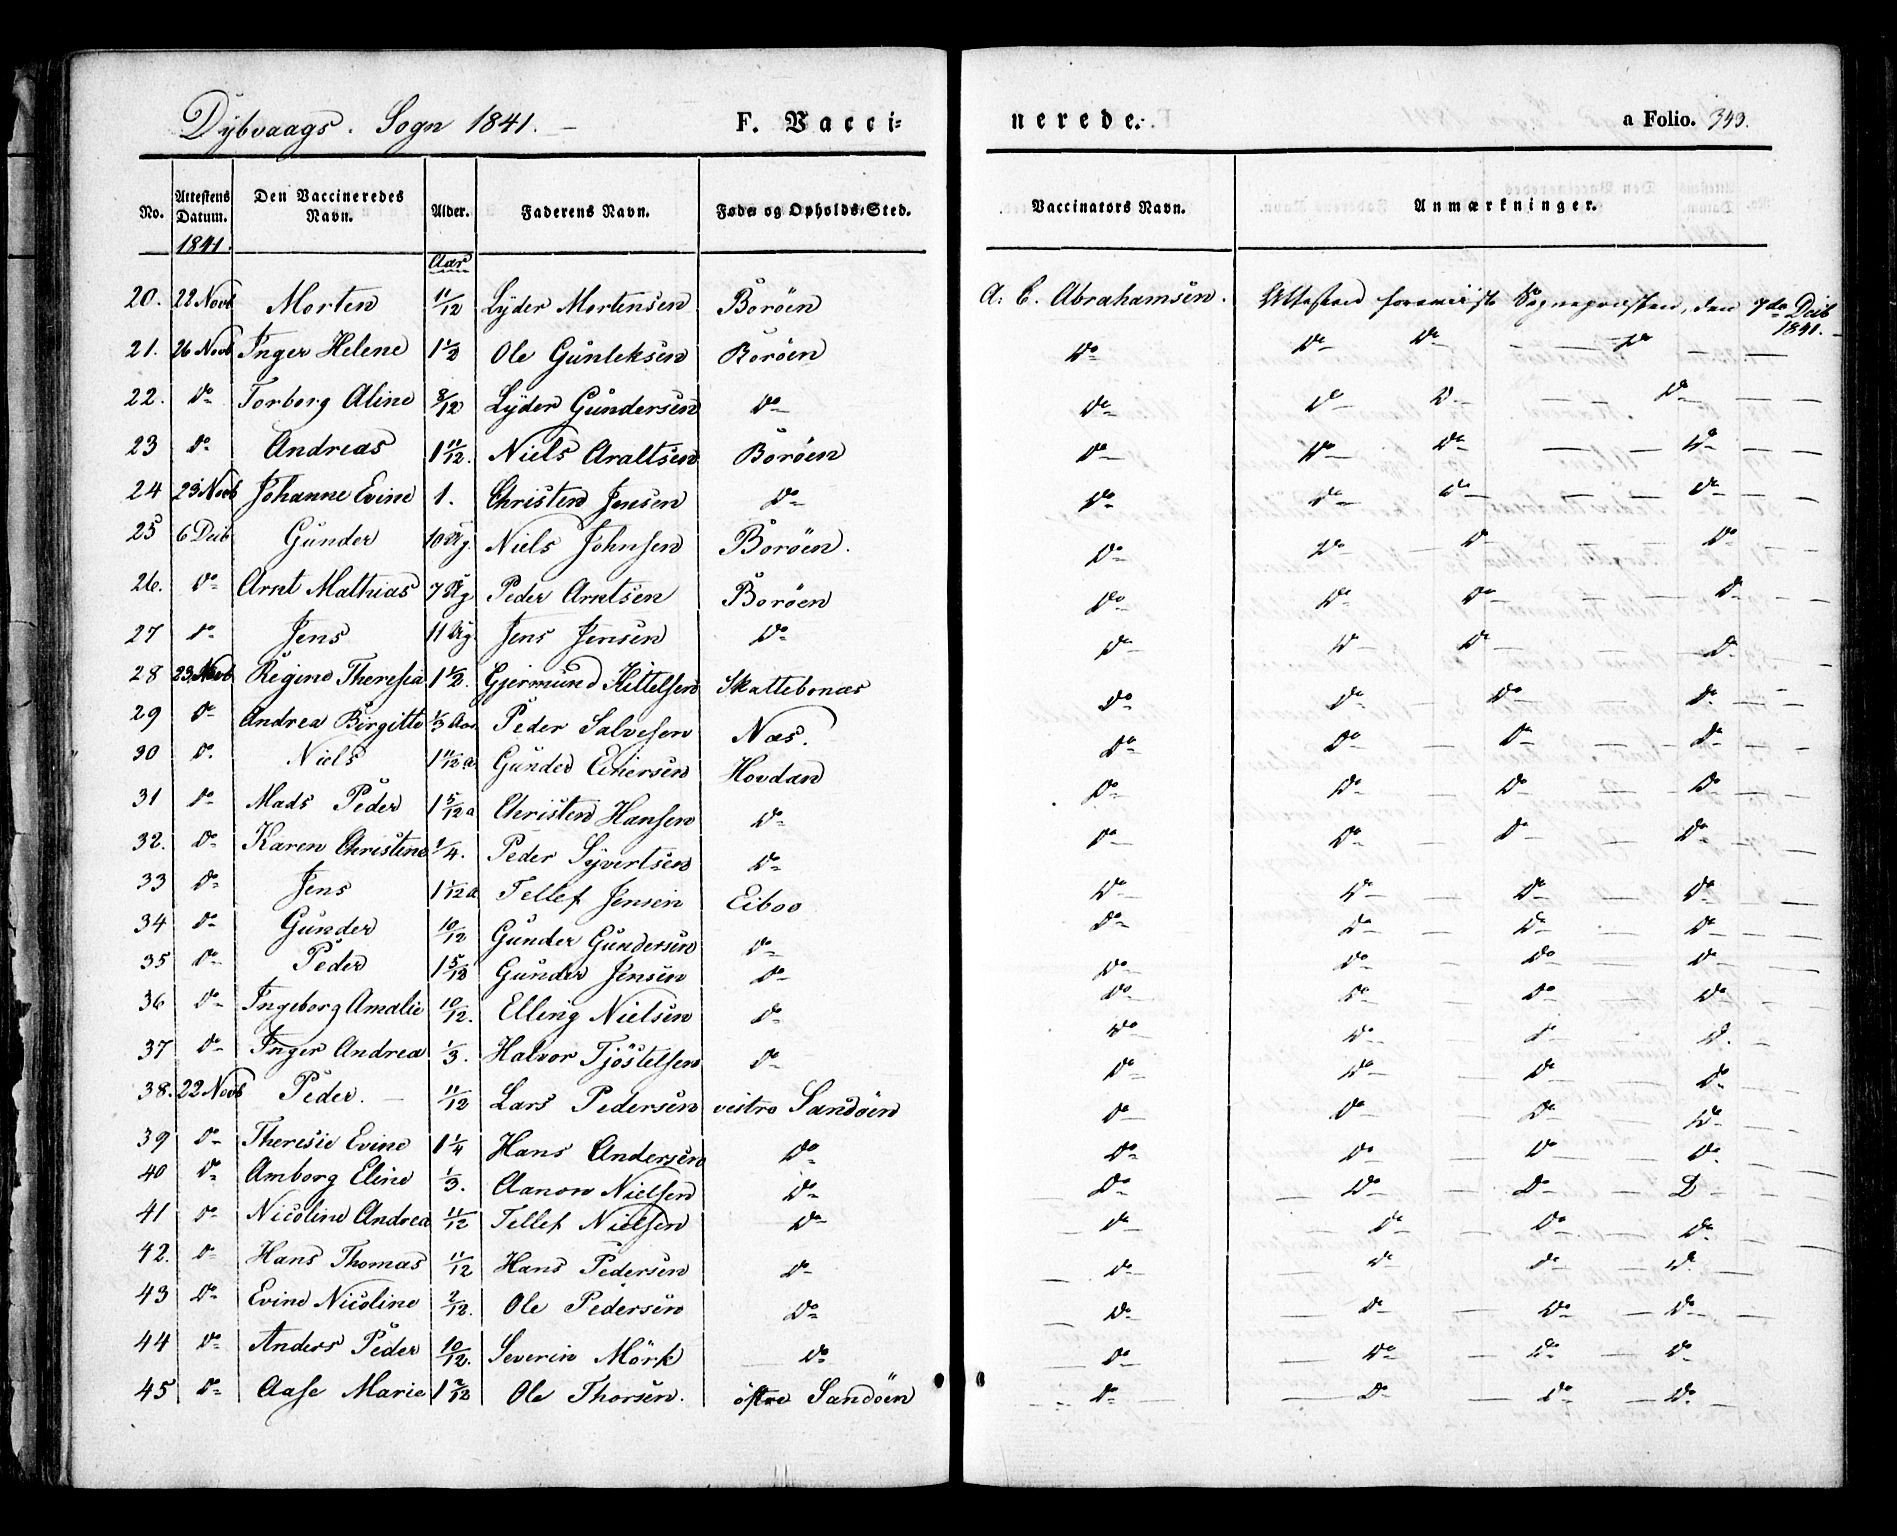 Dybvaags. Sogn 1841. F. Vaccinerede. a Folio. 343.
No. Attestens Datum. Den Vaccineredes Navn. Alder. Faderens Navn. Føde- og Opholds-Sted. Vaccinators Navn. Anmærkninger.
1841. Aar
20. 22 Novb Morten 11/12 Lyder Mortensen Borøen A. C. Abrahamsen. Attesten foreviist Sognepræsten, den 7de Decb 1841.
21. 26 Novb Inger Helene 1 1/2 Ole Gunleksen Borøen Do Do Do Do
22. Do Torborg Aline 8/12 Lyder Gundersen Do Do Do Do Do
23 Do Andreas 1 11/12. Niels Araltsen Borøen Do Do Do Do
24 23 Novb Johanne Evine 1. Christen Jensen Do Do Do Do Do
25 6 Decb Gunder 10 Ug. Niels Johnsen Borøen. Do Do Do Do
26. Do Arnt Mathias 7 Ug Peder Arntsen Borøen Do Do Do Do
27 Do Jens 11 Ug. Jens Jensen Do Do Do Do Do
28 23 Novb Regine Theresia 1 1/2. Gjermund Kittelsen Skattebonæs Do Do Do Do
29 Do Andrea Birgitte 1/3 Aar Peder Salvesen Næs. Do Do Do Do
30 Do Niels 1 11/12 a Gunder Einersen Hovdan Do Do Do Do
31 Do Mads Peder 1 5/12 a Christen Hansen Do Do Do Do Do
32. Do Karen Christine /4. Peder Syvertsen Do Do Do Do Do
33 Do Jens 1 1/12 a Tellef Jensen Eiboo Do Do Do Do
34 Do Gunder 10/12 Gunder Gundersen Do Do Do Do Do
35 Do Peder 1 5/12 Gunder Jensen Do Do Do Do Do
36 Do Ingeborg Amalie 10/12. Elling Nielsen Do Do Do Do Do
37 Do Inger Andrea 1/3. Halvor Tjöstelsen Do Do Do Do Do
38. 22 Novb Peder. 11/12 Lars Pedersen vestre Sandøen Do Do Do Do
39 Do Theresie Evine 1 1/4 Hans Andersen Do Do Do Do Do
40 Do Amborg Eline 1/3. Aanon Nielsen Do Do Do Do D
41 Do Nicoline Andrea 11/12 Tellef Nielsen Do Do Do Do Do
42. Do Hans Thomas 11/12 Hans Pedersen Do Do Do Do Do
43 Do Evine Nicoline 2/12. Ole Pedersen Do Do Do Do Do
44 Do Anders Peder 10/12. Severin Mörk Do Do Do Do Do
45 Do Aase Marie 1 2/12 Ole Thorsen. østre Sandøen Do Do Do Do